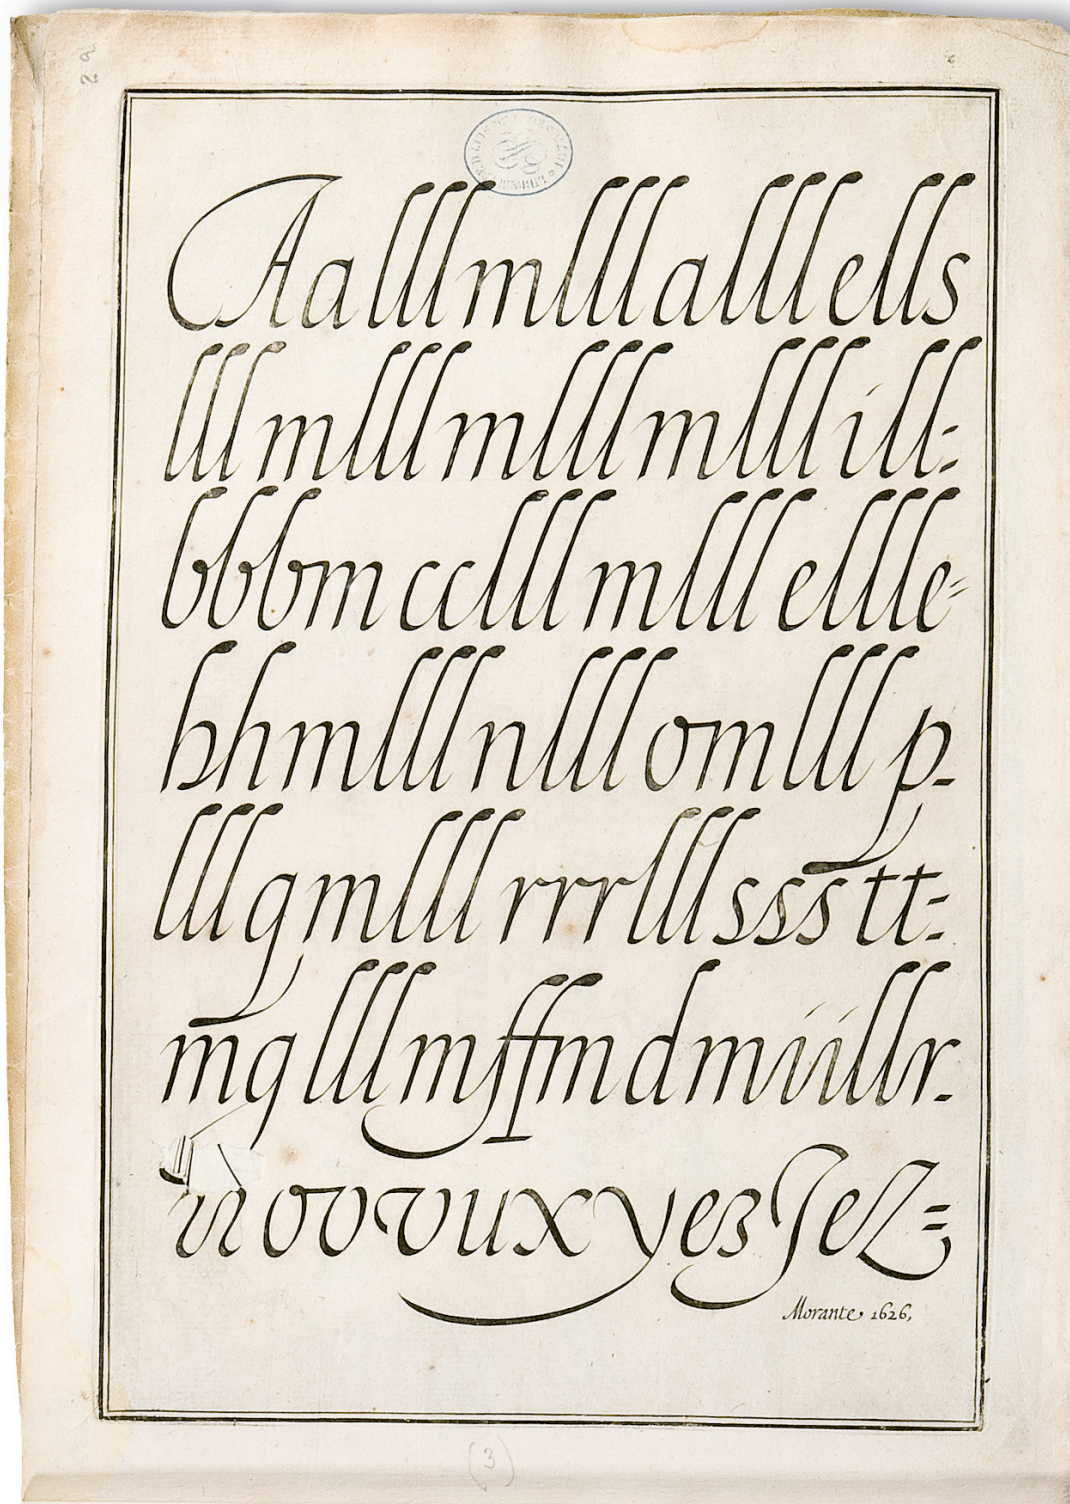 Aalllmlllalllells
lllmlllmlllmlllill=
bbbmcclllmlllellle=
hhmlllnlllomlllp-
lllqmlllrrrlllssstt=
mqlllmffmdmiillr.
Morante 1626,
(3)